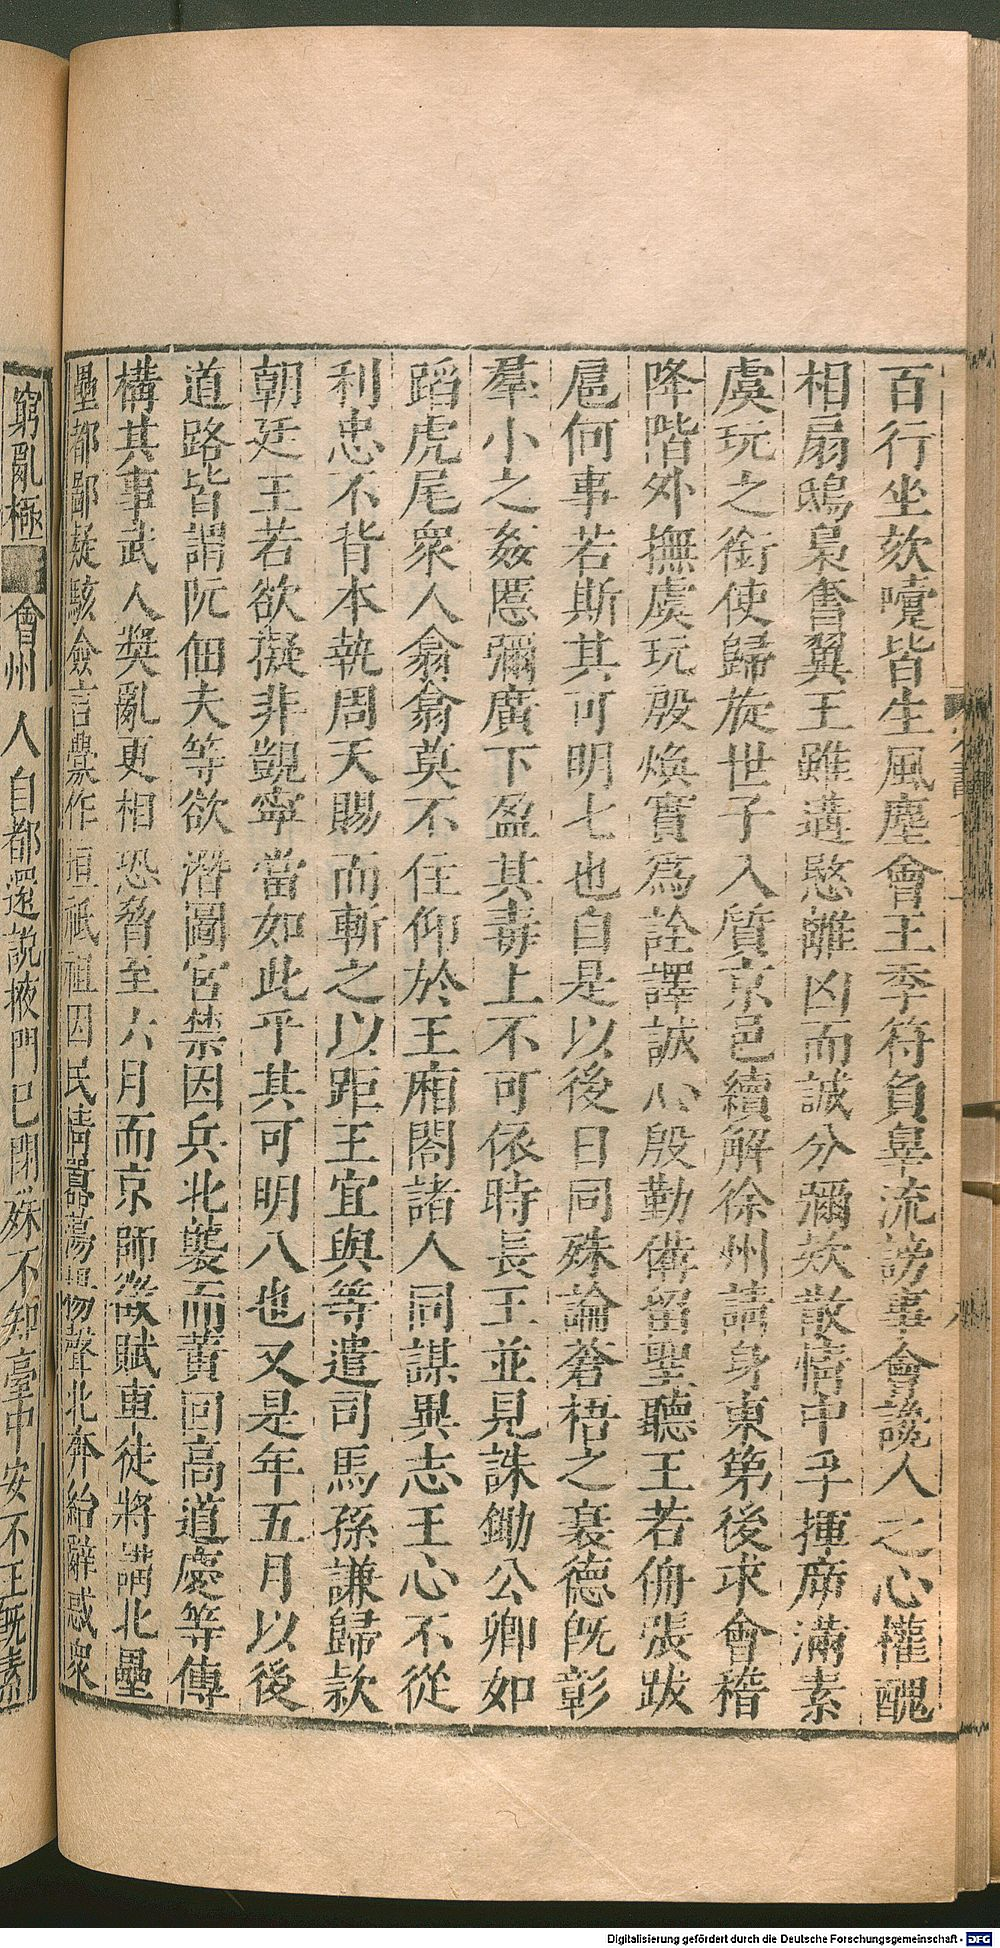 百行坐欬嚏皆生風塵會王季符負辠流謗事會讒人之心權醜
相扇鴟梟奮翼王雖遘愍離凶而誠分彌款散情中孚揮席滿素
虞玩之銜使歸旋世子入質京邑續解徐州請身東第後求會稽
降階外撫虞玩殷煥實為詮譯誠心殷勤備留聖聽王若侜張跋
扈何事若斯其可明七也自是以後日同殊論蒼梧之衰德旣彰
羣小之姦慝彌廣下盈其毒上不可依時長王並見誅鋤公卿如
蹈虎尾衆人翕翕莫不注仰於王廂閤諸人同謀異志王心不從
利忠不背本執周天賜而斬之以距王宜與等遣司馬孫謙歸款
朝廷王若欲擬非覬寧當如此乎其可明八也又是年五月以後
道路皆謂阮佃夫等欲潛圖宮禁因兵北襲而黃回高道慶等傳
構其事武人獎亂更相恐脅至六月而京師徵賦車徒將講北壘
壘都鄙疑駭僉言釁作垣祗祖因民情囂蕩揚聲北奔紿辭惑衆
窮亂極
會州 人自都還說掖門已閉殊不知臺中安不王旣素
Digitalisierung gefördert durch die Deutsche Forschungsgemeinschaft - DFG